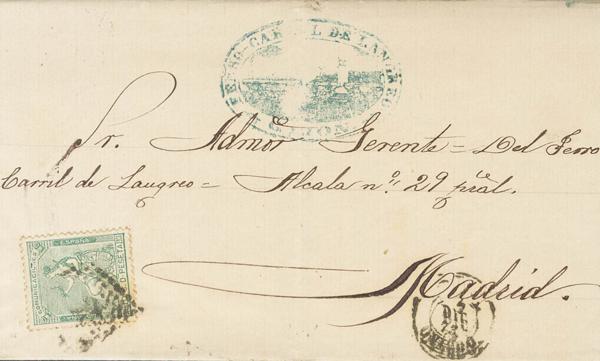 FERRO-CARRIL DE LANGREO
GIJON
Sr. Admor Gerente = Del Ferro
Carril de Langreo = Alcala nº. 29 pral.
COMUNICACIONES
ESPAÑA
PESETA
Madrid.
DIC
OVIEDO